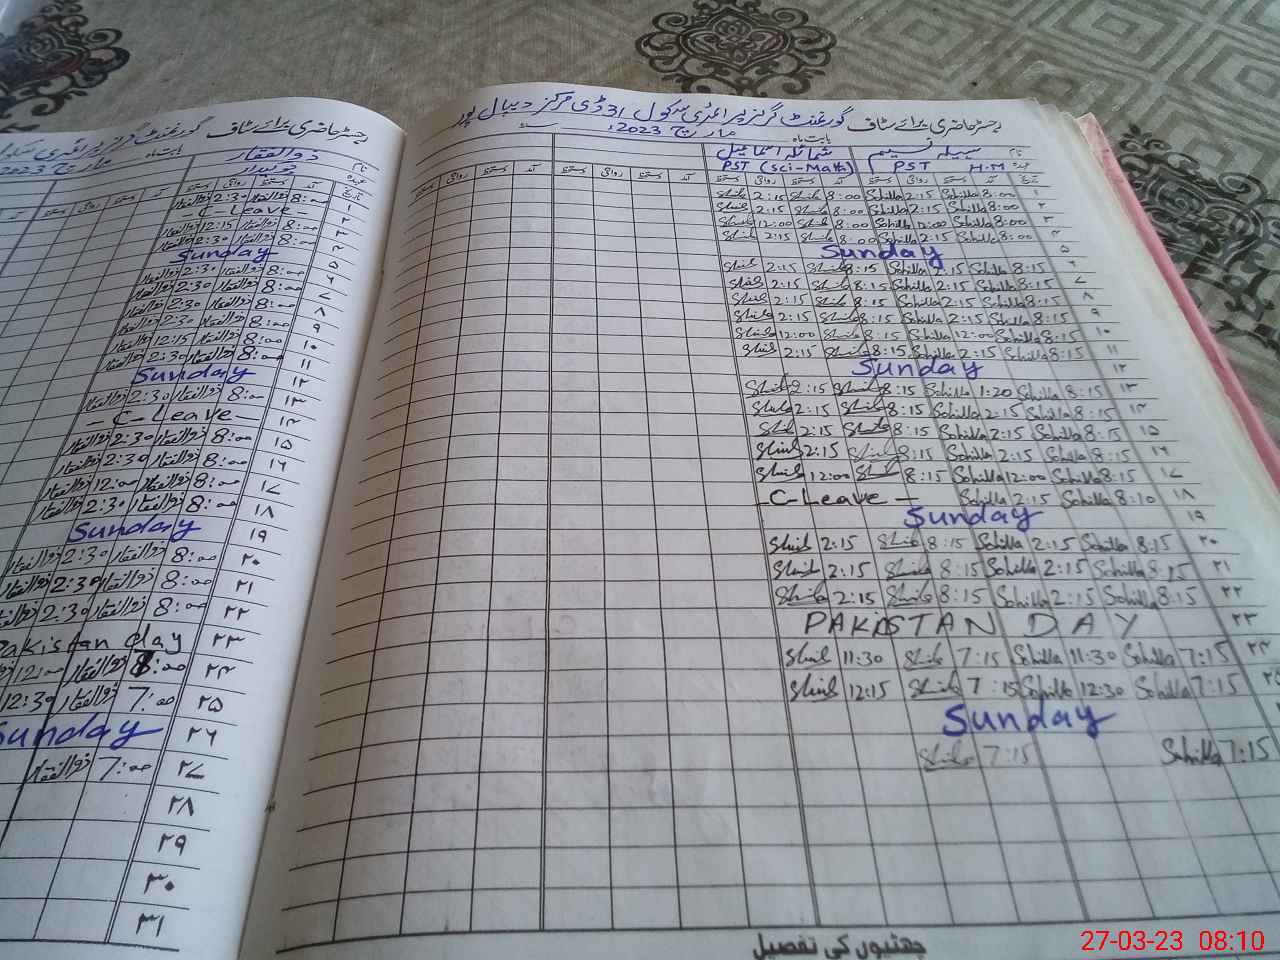 رجسٹر حاضری برائے سٹاف گورنمنٹ گرلز پرائمری سکول 31 ڈی مرکز دیپال پور
بابت ماہ مارچ 2023ء
نام سہیلہ نسیم شمائلہ اسماعیل
عہدہ H.M PST PST (Sci-Math)
تاریخ آمد دستخط روانگی دستخط آمد دستخط روانگی دستخط آمد دستخط روانگی دستخط آمد دستخط روانگی دستخط
۱ 8:00 Sohilla 2:15 Sohilla 8:00 2:15
۲ 8:00 Sohilla 2:15 Sohilla 8:00 2:15
۳ 8:00 Sohilla 12:00 Sohilla 8:00 12:00
۴ 8:00 Sohilla 2:15 Sohilla 8:00 2:15
۵ Sunday
۶ 8:15 Sohilla 2:15 Sohilla 8:15 2:15
۷ 8:15 Sohilla 2:15 Sohilla 8:15 2:15
۸ 8:15 Sohilla 2:15 Sohilla 8:15 2:15
۹ 8:15 Sohilla 2:15 Sohilla 8:15 2:15
۱۰ 8:15 Sohilla 12:00 Sohilla 8:15 12:00
۱۱ 8:15 Sohilla 2:15 Sohilla 8:15 2:15
۱۲ Sunday
۱۳ 8:15 Sohilla 1:20 Sohilla 8:15 2:15
۱۴ 8:15 Sohilla 2:15 Sohilla 8:15 2:15
۱۵ 8:15 Sohilla 2:15 Sohilla 8:15 2:15
۱۶ 8:15 Sohilla 2:15 Sohilla 8:15 2:15
۱۷ 8:15 Sohilla 12:00 Sohilla 8:15 12:00
۱۸ 8:10 Sohilla 2:15 Sohilla - C-Leave -
۱۹ Sunday
۲۰ 8:15 Sohilla 2:15 Sohilla 8:15 2:15
۲۱ 8:15 Sohilla 2:15 Sohilla 8:15 2:15
۲۲ 8:15 Sohilla 2:15 Sohilla 8:15 2:15
۲۳ PAKISTAN DAY
۲۴ 7:15 Sohilla 11:30 Sohilla 7:15 11:30
۲۵ 7:15 Sohilla 12:30 Sohilla 7:15 12:15
Sunday
7:15 Sohilla 7:15
چھٹیوں کی تفصیل
رجسٹر حاضری برائے سٹاف گورنمنٹ گرلز پرائمری
بابت ماہ مارچ 2023
نام ذوالفقار
عہدہ چوکیدار
تاریخ آمد دستخط روانگی دستخط آمد دستخط روانگی دستخط
۱ 8:00 ذوالفقار 2:30 ذوالفقار
۲ - C-Leave -
۳ 8:00 ذوالفقار 12:15 ذوالفقار
۴ 8:00 ذوالفقار 2:30 ذوالفقار
۵ Sunday
۶ 8:00 ذوالفقار 2:30 ذوالفقار
۷ 8:00 ذوالفقار 2:30 ذوالفقار
۸ 8:00 ذوالفقار 2:30 ذوالفقار
۹ 8:00 ذوالفقار 2:30 ذوالفقار
۱۰ 8:00 ذوالفقار 12:15 ذوالفقار
۱۱ 8:00 ذوالفقار 2:30 ذوالفقار
۱۲ Sunday
۱۳ 8:00 ذوالفقار 2:30 ذوالفقار
۱۴ - C-Leave -
۱۵ 8:00 ذوالفقار 2:30 ذوالفقار
۱۶ 8:00 ذوالفقار 2:30 ذوالفقار
۱۷ 8:00 ذوالفقار 12:00 ذوالفقار
۱۸ 8:00 ذوالفقار 2:30 ذوالفقار
۱۹ Sunday
۲۰ 8:00 ذوالفقار 2:30 ذوالفقار
۲۱ 8:00 ذوالفقار 2:30 ذوالفقار
۲۲ 8:00 ذوالفقار 2:30 ذوالفقار
۲۳ Pakistan day
۲۴ 8:00 ذوالفقار 12:00
۲۵ 7:00 ذوالفقار 12:30
۲۶ Sunday
۲۷ 7:00 ذوالفقار
۲۸
۲۹
۳۰
۳۱
27-03-23 08:10